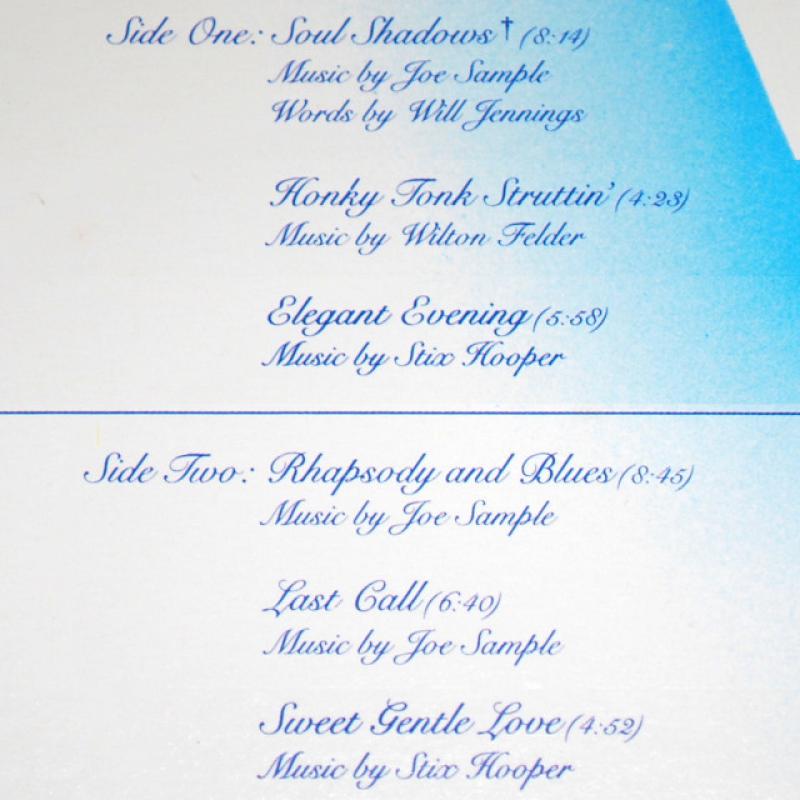 Side One: Soul Shadows † (8:14)
Music by Joe Sample
Words by Will Jennings
Honky Tonk Struttin' (4:23)
Music by Wilton Felder
Elegant Evening (5:58)
Music by Stix Hooper
Side Two: Rhapsody and Blues (8:45)
Music by Joe Sample
Last Call (6:40)
Music by Joe Sample
Sweet Gentle Love (4:52)
Music by Stix Hooper